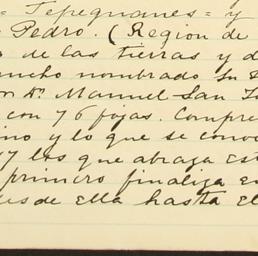 = Tepeguanes = y
Pedro. (Region de
de las tierras y d
ncho nombrado Sn
Dn. Manuel San
con 76 fojas. Compre
ino y lo que se conoc
7 los que abraza est
primero finaliza e
es de ella hasta el